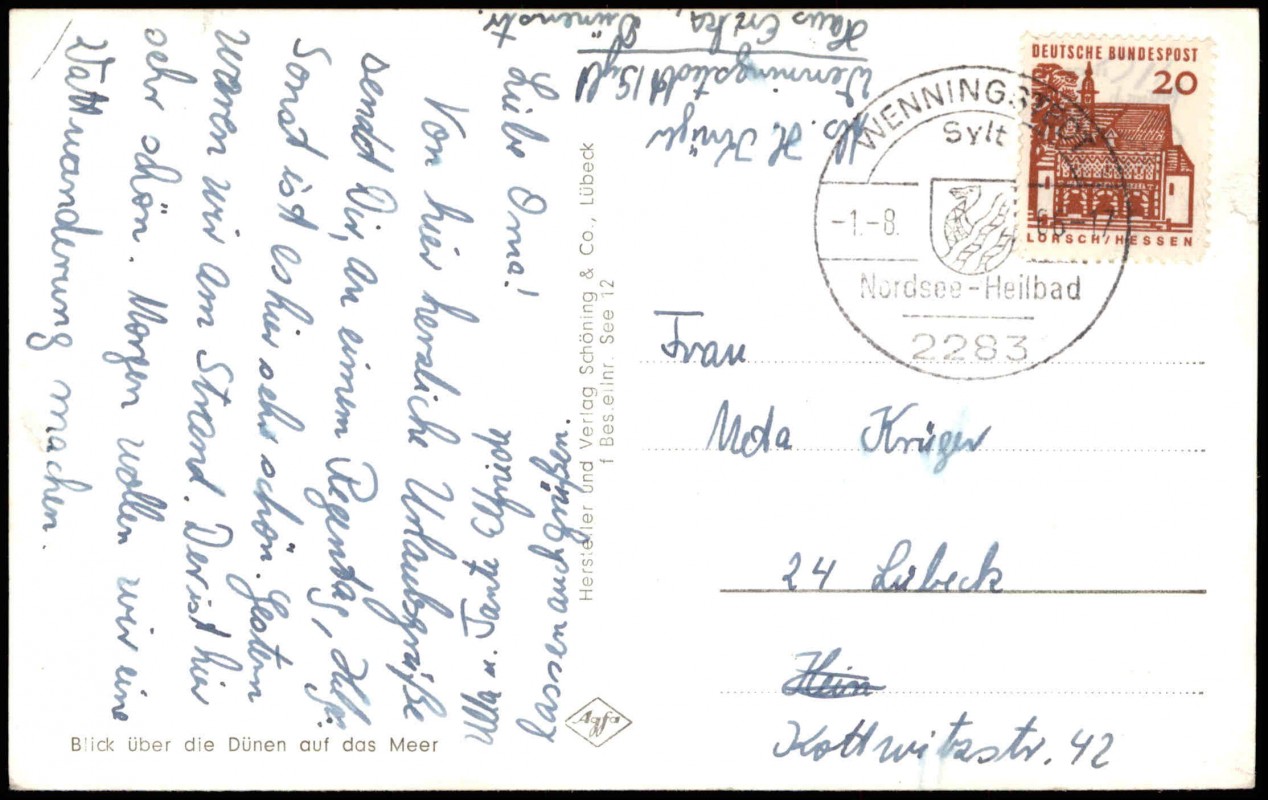 Abs. H. Krüger
Wenningstedt/Sylt
Haus Erika, Dünenstr.
Liebe Oma!
Von hier herzliche Urlaubsgrüße
sendet Dir, an einem Regentag,
Sonst ist es hier sehr schön. Gestern
waren wir am Strand. Der ist hier
sehr schön. Morgen wollen wir eine
Wattwanderung machen.
u. Fam.
Blick über die Dünen auf das Meer
Hersteller und Verlag Schöning & Co., Lübeck
f Bes.ellnr. See 12
Agfa
DEUTSCHE BUNDESPOST
20
LORSCH/HESSEN
WENNINGSTEDT
Sylt
-1.-8. 66-17
Nordsee-Heilbad
2283
Frau
Meta Krüger
24 Lübeck
Kottwitzstr. 42